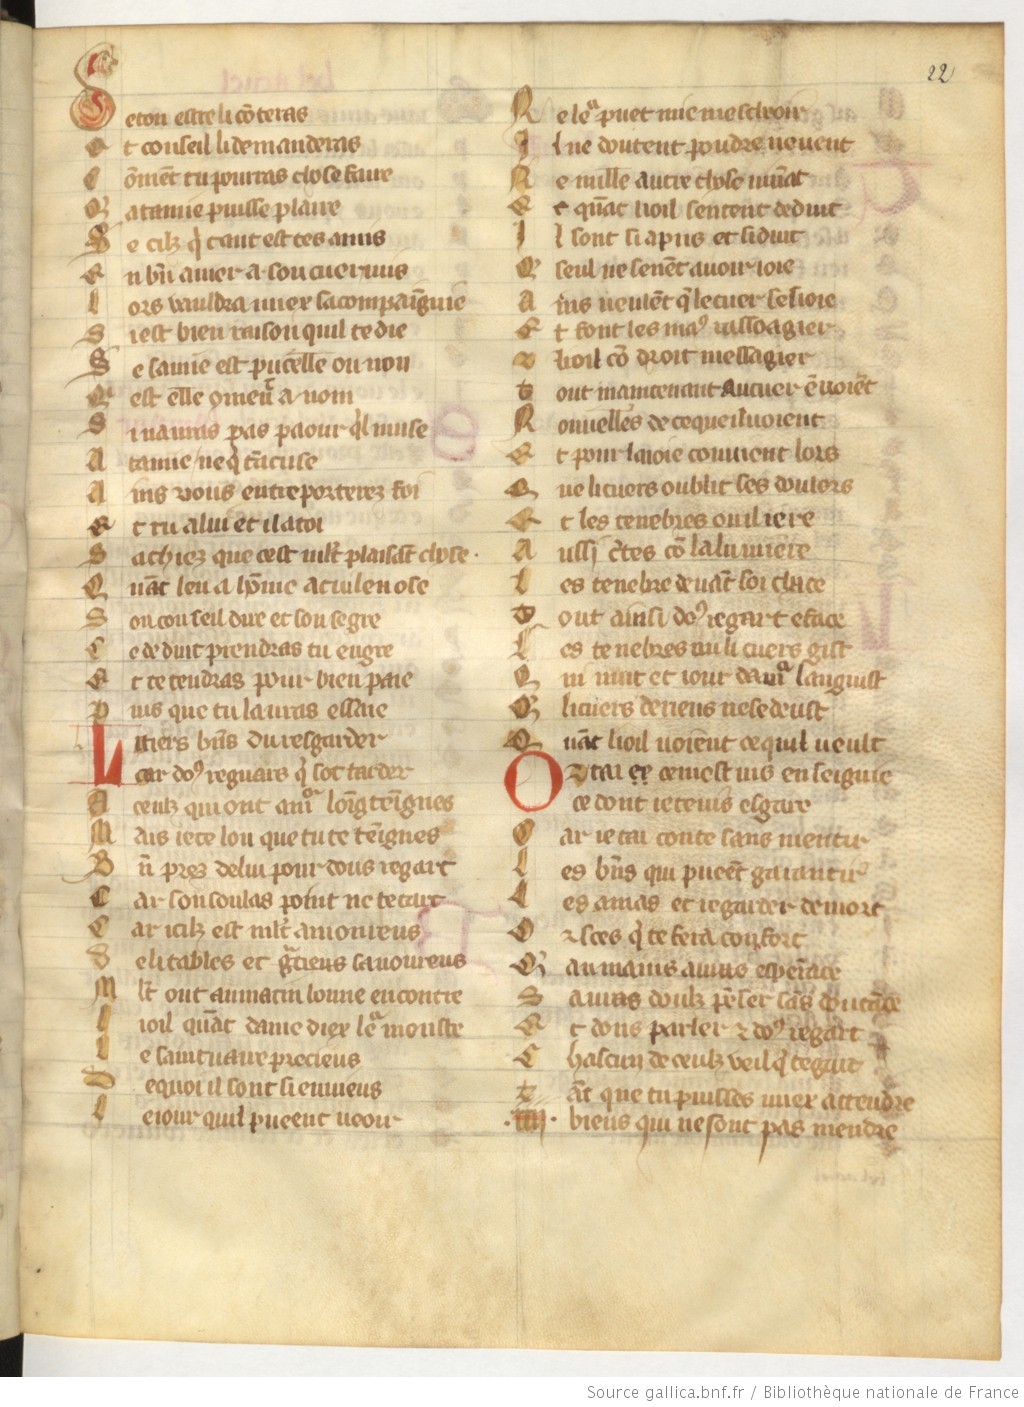 22
S eton estre li cōteras
E t conseil li demanderas
C ōmēt tu pourras chose faire
Q a tamie puisse plaire
S e cilz q̄ tant est tes amis
E n bn̄ amer a son cuer mis
L ors vauldra miex sa compaignie
S i est bien raison quil te die
S e samie est pucelle ou non
Q i est elle 9ment a nom
S i nauras pas paour ql muse
A tamie ne q̄ tacuse
A ins vous entreporterez foi
E t tu a lui et il a toi
S achiez que cest mlt plaisāt chose.
Q uāt len a hōme a cui len ose
S on conseil dire et son segre
C e deduit prendras tu en gre
E t te tendras pour bien paie
P uis que tu lauras essaie
L i tiers bn̄s du resgarder
car do9 reguars q̄ sot tarder
A ceulz qui ont am̄ loig teignes
M ais ie te lou que tu te teignes
B n̄ prez de lui pour dous regart
C ar son soulas point ne te tart
C ar icilz est mlt amoureus
D elitables et gciens savoureus
M lt ont au matin bonne encontre
L i oil quāt dame diex le moustre
L e saintuaire precieus
D e quoi il sont si envieus
L e iour quil pueent veoir
N e le puet mie mescheoir
I l ne doutent poudre ne vent
N e nulle autre chose nuisāt
E t quāt li oil sentent deduit
I l sont si apris et si duit
Q seul ne sevēt avoir ioie
A ins veulēt q̄ le cuer sesioie
E t font les max rassoagier
C li oil cō droit messagier
T out maintenant au cuer ēvoiēt
N ouvelles de ce que il voient
E t pour la ioie convient lors
Q ue li cuers oublit ses doulors
E t les tenebres ou il iere
A ussi c̄tes cō la lumiere
L es tenebre devāt soi chace
T out ainsi do9 regart eface
L es tenebres ou li cuers gist
Q ui nuit et iour dam̄ languist
Q li cuers de riens ne se deust
Q uāt li oil voient ce quil veult
O r tai ce cemest vis enseignie
ce dont ie te vis esgare
C ar ie tai conte sans mentir
L es bn̄s qui pueēt garantir
L es amās et regarder de mort
O r sces q̄ te fera confort
Q au mains avras esperāce
S avras doulz pēser sās doutāce
E t dous parler et do9 regart
C hascun de ceulz veil q̄ te gart
T āt que tu puisses miex attendre
.IIII. biens qui ne sont pas mendre
Source gallica.bnf.fr / Bibliothèque nationale de France